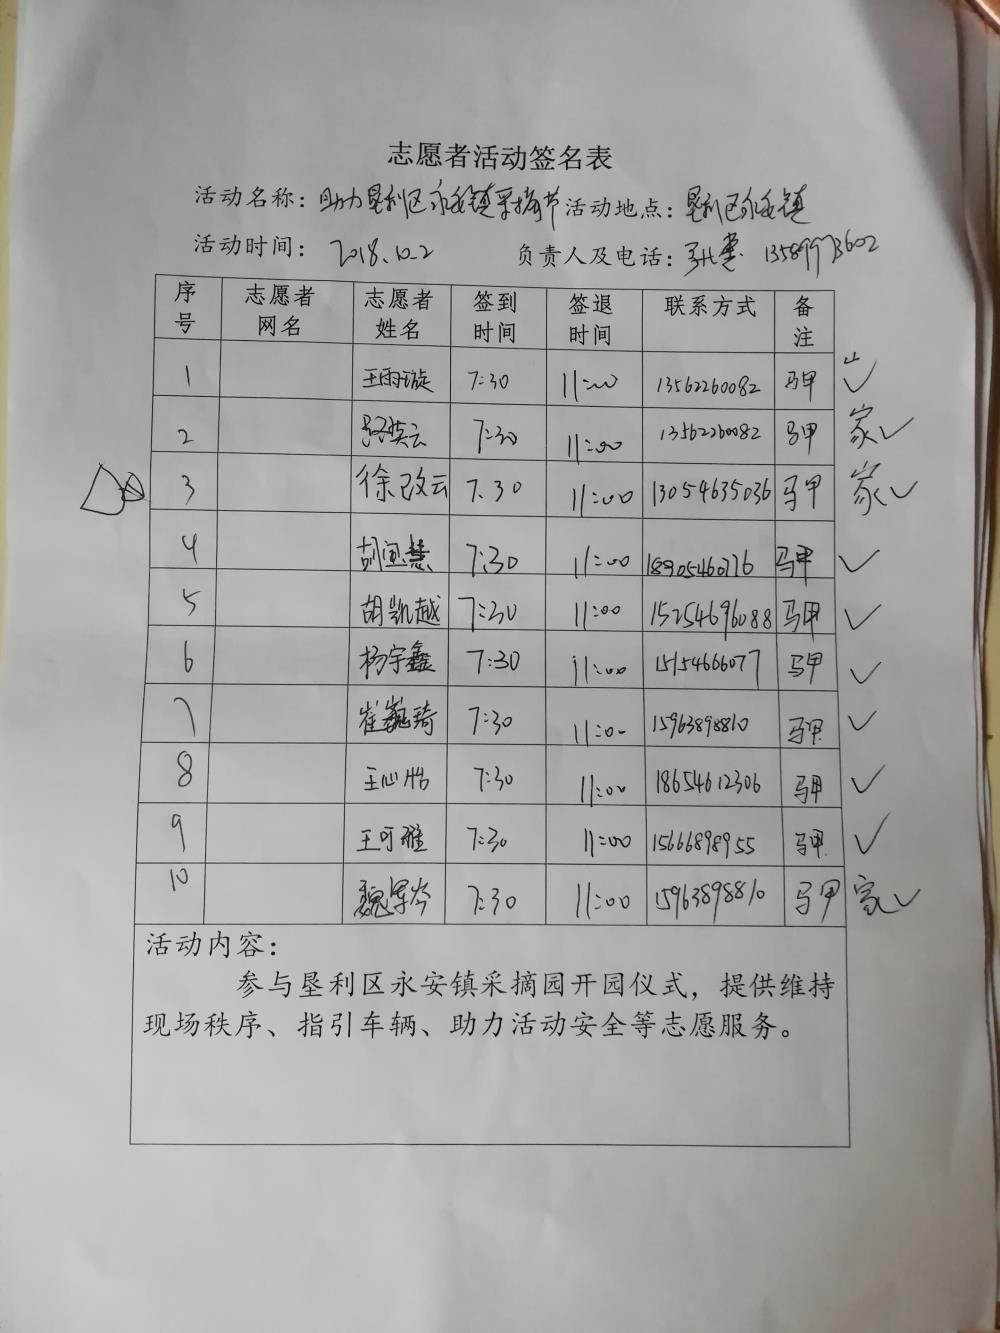 志愿者活动签名表
活动名称：助力垦利区永安镇采摘节 活动地点：垦利区永安镇
活动时间：2018.10.2 负责人及电话： 13589973602
序号 志愿者网名 志愿者姓名 签到时间 签退时间 联系方式 备注
1 王雨璇 7:30 11:00 13562260082 马甲 ✓
2 英云 7:30 11:00 13562260082 马甲 家✓
3 徐改云 7.30 11:00 13054635036 马甲 家✓
4 胡 慧 7:30 11:00 18905460776 马甲 ✓
5 胡凯越 7:30 11:00 15254696088 马甲 ✓
6 杨宇鑫 7:30 11:00 15154666077 马甲 ✓
7 崔巍琦 7:30 11:00 15963898810 马甲 ✓
8 王心怡 7:30 11:00 18654612306 马甲 ✓
9 王可雅 7:30 11:00 15666898955 马甲 ✓
10 魏 岑 7:30 11:00 15963898810 马甲 家✓
活动内容：
参与垦利区永安镇采摘园开园仪式，提供维持
现场秩序、指引车辆、助力活动安全等志愿服务。